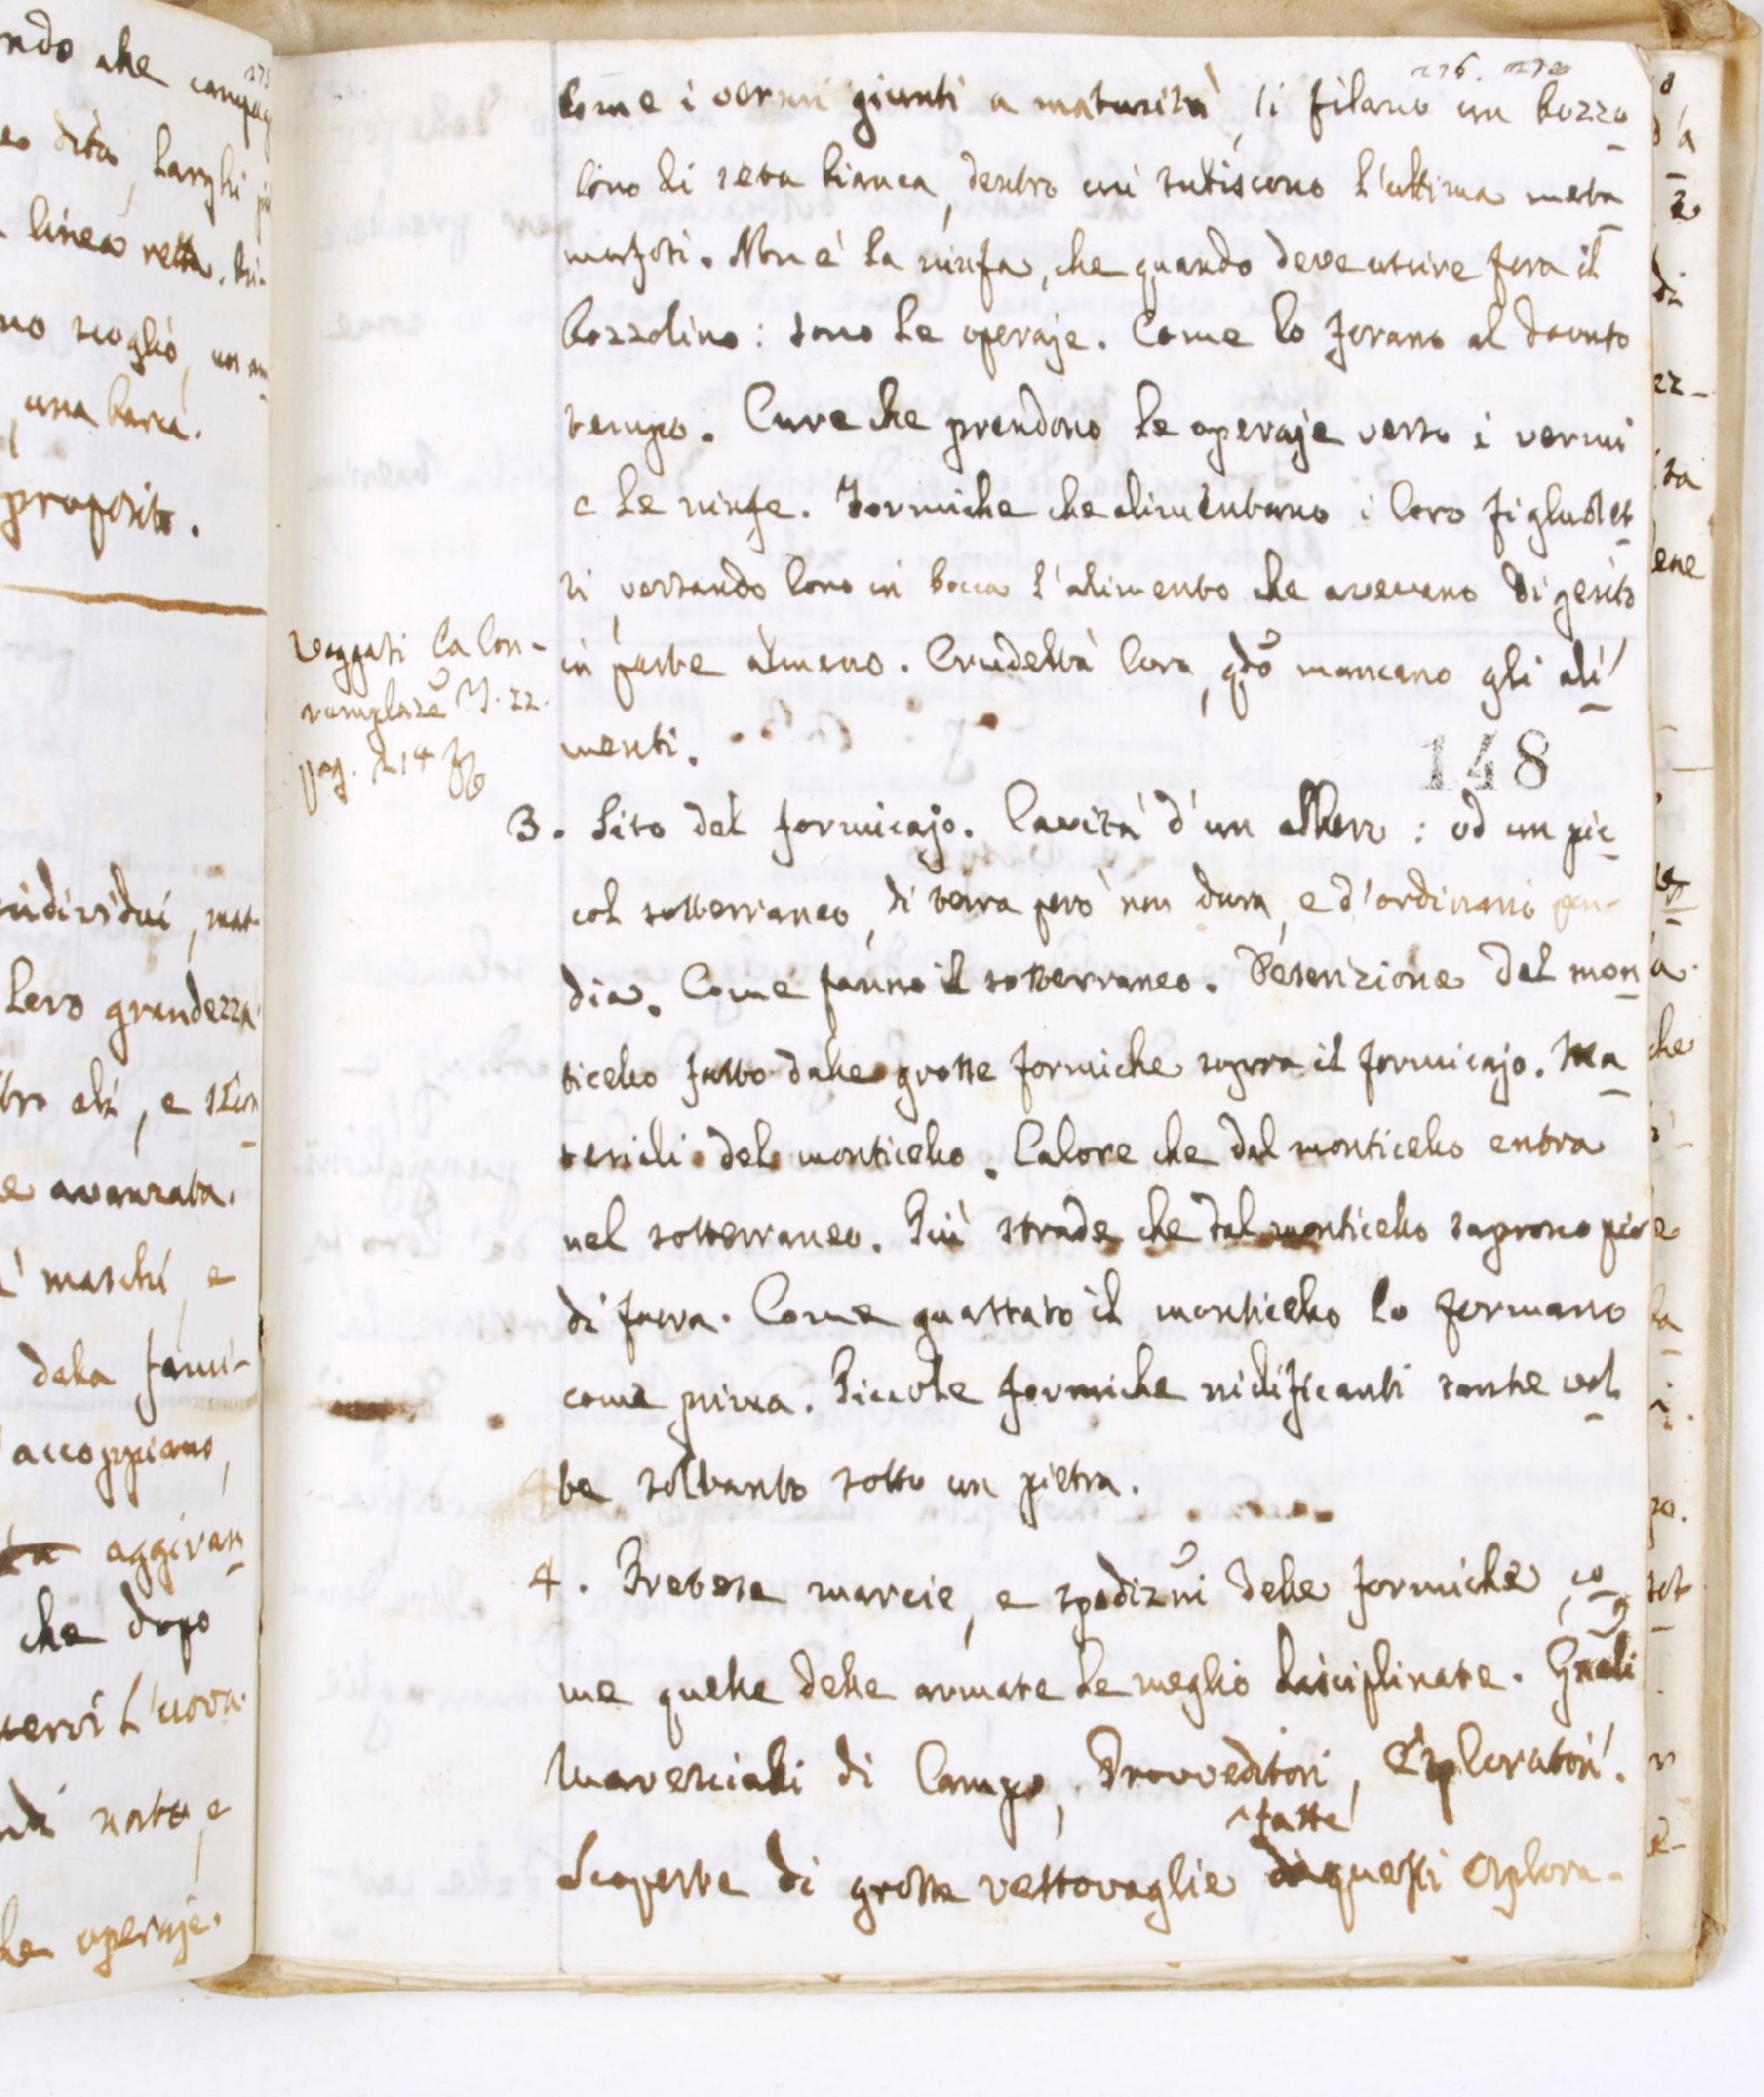 276.
Come i vermi giunti a maturità, si filano un bozzo
lino di seta bianca, dentro cui subiscono l'ultima meta
morfosi. Non è la ninfa, che quando deve uscire fora il
bozzolino: sono le operaje. Come lo forano al dovuto
tempo. Cure che prendono le operaje verso i vermi
e le ninfe. Formiche che alimentano i loro figliolet
ti, versando loro in bocca l'alimento che avevano digerito
in parte almeno. Crudeltà loro, qdo mancano gli ali
menti.
Veggasi la Con-
templazē T. 22.
pag. 214
148
3. Sito del formicajo. Cavità d'un albero: od un pic
col sotterraneo, di terra però non dura, e d'ordinario pen-
dia. Come fanno il sotterraneo. Descrizione del mon
ticello fatto dalle grosse formiche sopra il formicajo. Ma
teriali del monticello. Calore che dal monticello entra
nel sotterraneo. Più strade che dal monticello s'aprono per
di fuora. Come guastato il monticello lo formano
come prima. Piccole formiche nidificanti tante vol
te soltanto sotto un pietra.
4. Pretese marcie, e spedizni delle formiche, co
me quelle delle armate le meglio disciplinate. Gnali
Marescialli di Campo, Provveditori, Esploratori.
fatte
Scoperte di grosse vettovaglie da questi esplora-
ndo che campag
dita, larghi
linea retta.
no scoglio,
una barca.
proposito.
individui, mat
loro grandezza
e avanzata.
maschi, e
della fami-
accoppiano,
aggiran
che dopo
l'uova.
notte, e
le operaje.